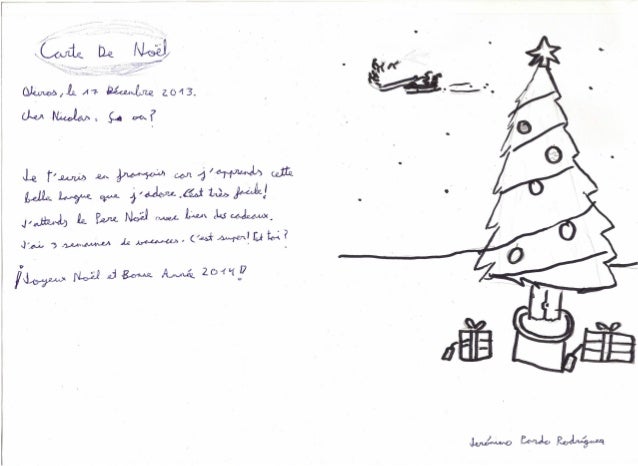 Carte De Noël
le 17 Décembre 2013.
Cher Nicolas. Ça va?
Je t'ecris en français car j'apprends cette
belle langue que j'adore. C'est très facile!
J'attends le Pere Noël avec bien des cadeaux.
J'ai 3 semaines de vacances. C'est super! Et toi?
¡Joyeux Noël et Bonne Année 2014!
Jerónimo Pardo Rodríguez